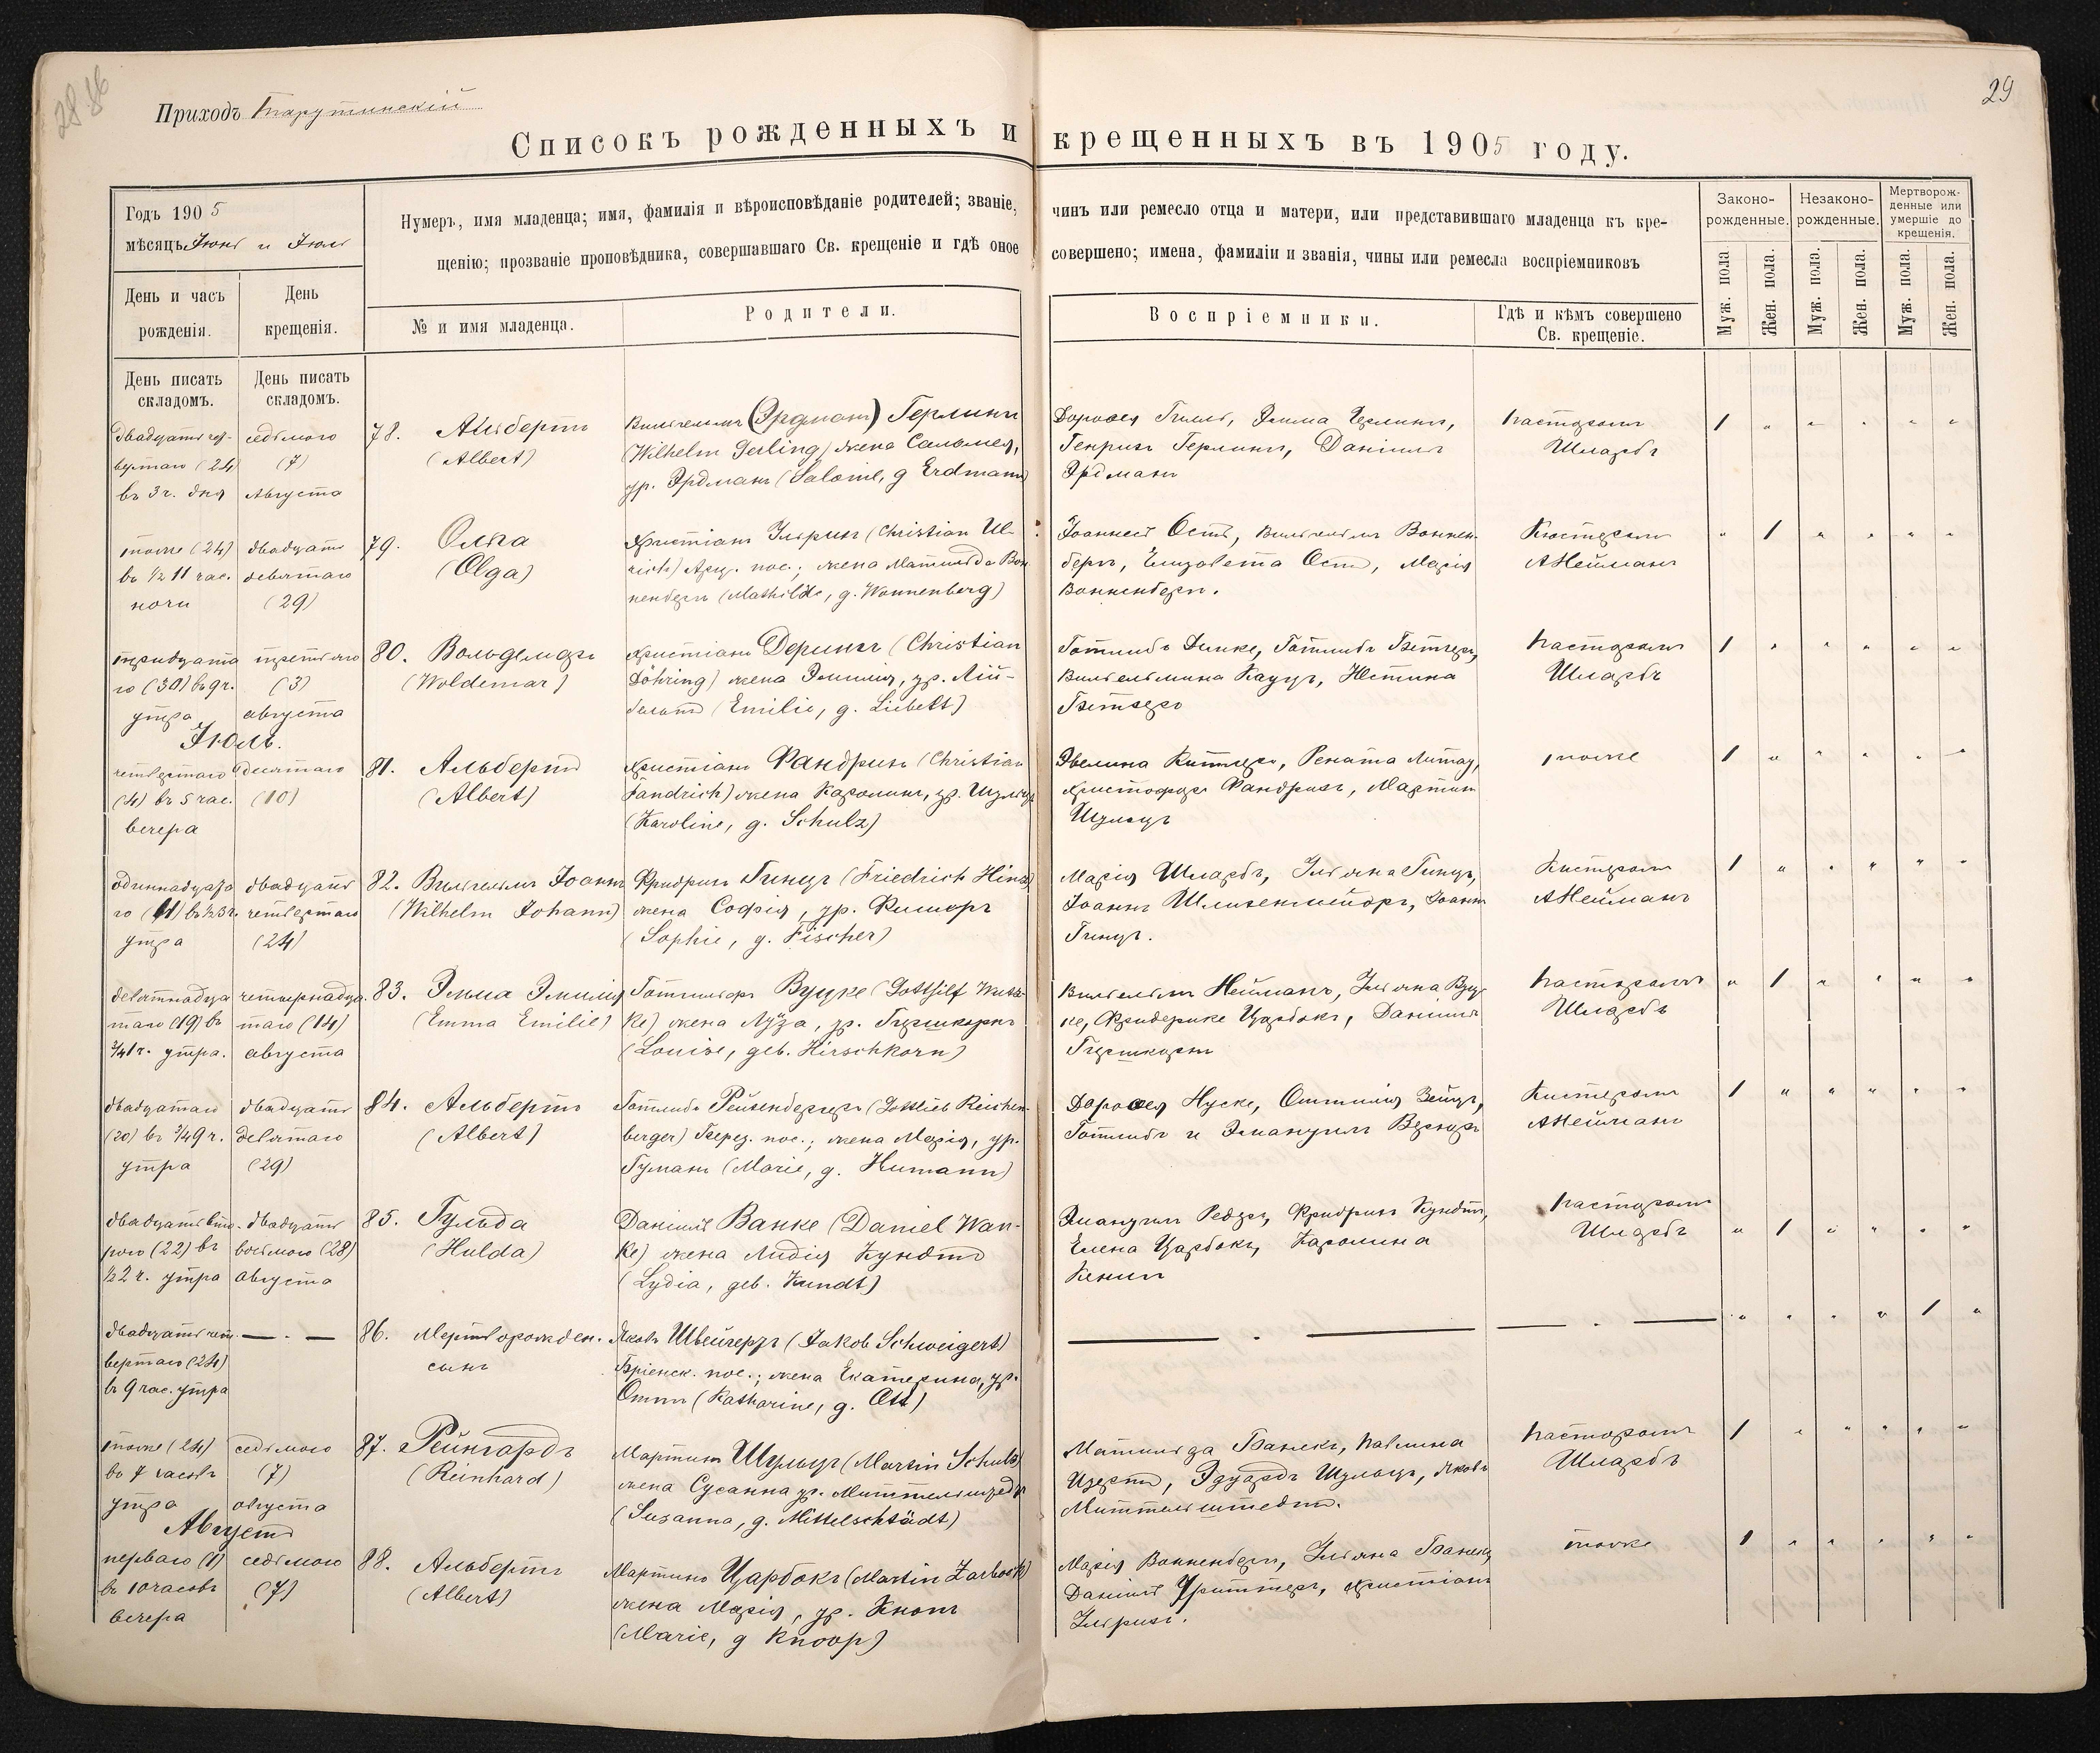 28 86
29
Приходъ Тарутинскій
Списокъ рожденныхъ и крещенныхъ въ 1905 году.
Годъ 1905
мѣсяцъ Іюнь и Іюль
Нумеръ, имя младенца; имя, фамилія и вѣроисповѣданіе родителей; званіе, чинъ или ремесло отца и матери, или представившаго младенца къ кре-
щенію; прозваніе проповѣдника, совершавшаго Св. крещеніе и гдѣ оное совершено; имена, фамиліи и званія, чины или ремесла воспріемниковъ
Законо-
рожденные.
Незаконо-
рожденные.
Мертворож-
денные или
умершіе до
крещенія.
День и часъ
рожденія.
День
крещенія.
№ и имя младенца.
Родители.
Воспріемники.
Гдѣ и кѣмъ совершено
Св. крещеніе.
Муж. пола
Жен. пола.
Муж. пола.
Жен. пола.
Муж. пола.
Жен. пола.
День писать
складомъ.
День писать
складомъ.
двадцать чет-
вертаго (24)
въ 3 ч. дня
седьмого
(7)
Августа
78. Альбертъ
(Albert)
Вильгельмъ (Эрдманъ) Герлингъ
(Wilhelm Gerling) жена Саломея,
ур. Эрдманъ (Salome, g Erdmann)
Доротея Гиль, Эмма Герлингъ,
Генрихъ Герлингъ, Даніилъ
Эрдманъ
Пасторомъ
Шларбъ
1 " " " " "
тоже (24)
въ ½ 11 час.
ночи
двадцать
девятаго
(29)
79. Ольга
(Olga)
Христіанъ Ульрихъ (Christian Ul-
rich) Арц. пос.; жена Матильда Вон
ненбергъ (Mathilde, g. Wonnenberg)
Іоаннесъ Остъ, Вильгельмъ Воннен-
бергъ, Елизавета Остъ, Марія
Вонненбергъ.
Кюстеромъ
А Нейманъ
" 1 " " " "
тридцата
го (30) въ 9 ч.
утра
третьяго
(3)
августа
80. Вольдемаръ
(Woldemar)
Христіанъ Дерингъ (Christian
Döhring) жена Эмилія, ур. Лій-
бельтъ (Emilie, g. Liebelt)
Готлибъ Динке, Готлибъ Бетхеръ,
Вильгельмина Кауцъ, Юстина
Бетхеръ
Пасторомъ
Шларбъ
1 " " " " "
Іюль.
четвертаго
(4) въ 5 час.
вечера
десятаго
(10)
81. Альбертъ
(Albert)
Христіанъ Фандрихъ (Christian
Fandrich) жена Каролина, ур. Шульцъ
(Karoline, g. Schulz)
Эвелина Китлеръ, Рената Литау,
Христофоръ Фандрихъ, Мартинъ
Шульцъ
тоже
1 " " " " "
одиннадцата
го (11) въ ½ 3 ч.
утра
двадцать
четвертаго
(24)
82. Вильгельмъ Іоаннъ
(Wilhelm Johann)
Фридрихъ Гинцъ (Friedrich Hinz)
жена Софія, ур. Фишеръ
(Sophie, g. Fischer)
Марія Шларбъ, Юльяна Гинцъ,
Іоаннъ Шлихенмейеръ, Іоаннъ
Гинцъ.
Кистеромъ
А Нейманъ
1 " " " " "
девятнадца
таго (19) въ
¾ 1 ч. утра.
четырнадца-
таго (14)
августа
83. Эмма Эмилія
(Emma Emilie)
Готтгильфъ Вуцке (Gotthilf Wutz-
ke) жена Луиза, ур. Гиршкорнъ
(Louise, geb. Hirschkorn)
Вильгельмъ Нейманъ, Юльяна Вуц-
ке, Фридерике Царбокъ, Даніилъ
Гиршкорнъ
Пасторомъ
Шларбъ
" 1 " " " "
двадцатаго
(20) въ ¾ 9 ч.
утра
двадцать
девятаго
(29)
84. Альбертъ
(Albert)
Готлибъ Рейхенбергеръ (Gottlieb Reichen-
berger) Берез. пос.; жена Марія, ур.
Гуманъ (Marie, g. Humann)
Доротея Нуске, Оттилія Зейцъ,
Готлибъ и Эмануилъ Вернеръ
Кистеромъ
А Нейманъ
1 " " " " "
двадцать вто-
рого (22) въ
½ 2 ч. утра
двадцать
восьмого (28)
августа
85. Гульда
(Hulda)
Даніилъ Ванке (Daniel Wan-
ke) жена Лидія Кундтъ
(Lydia, geb. Kundt)
Эмануилъ Редеръ, Фридрихъ Кундтъ,
Елена Царбокъ, Каролина
Кенигъ
Пасторомъ
Шларбъ
" 1 " " " "
двадцать чет-
вертаго (24)
въ 9 час. утра
86. Мертворожден.
сынъ
Яковъ Швейгертъ (Jakob Schweigert)
Бріенск. пос.; жена Екатерина, ур.
Оттъ (Katharine, g. Ott)
" " " " 1 "
тоже (24)
въ 7 часовъ
утра
седьмого
(7)
августа
87. Рейнгардъ
(Reinhard)
Мартинъ Шульцъ (Martin Schulz)
жена Сусанна ур. Миттельштедтъ
(Susanna, g. Mittelschtädt)
Матильда Банекъ, Павлина
Цертъ, Эдуардъ Шульцъ, Яковъ
Миттельштедтъ.
Пасторомъ
Шларбъ
1 " " " " "
Августъ
перваго (1)
въ 10 часовъ
вечера
седьмого
(7)
88. Альбертъ
(Albert)
Мартинъ Царбокъ (Martin Zarbock)
жена Марія, ур. Кнопъ
(Marie, g Knoop)
Марія Вонненбергъ, Юльяна Банекъ,
Даніилъ Криттеръ, Христіанъ
Ульрихъ.
тоже
1 " " " " "